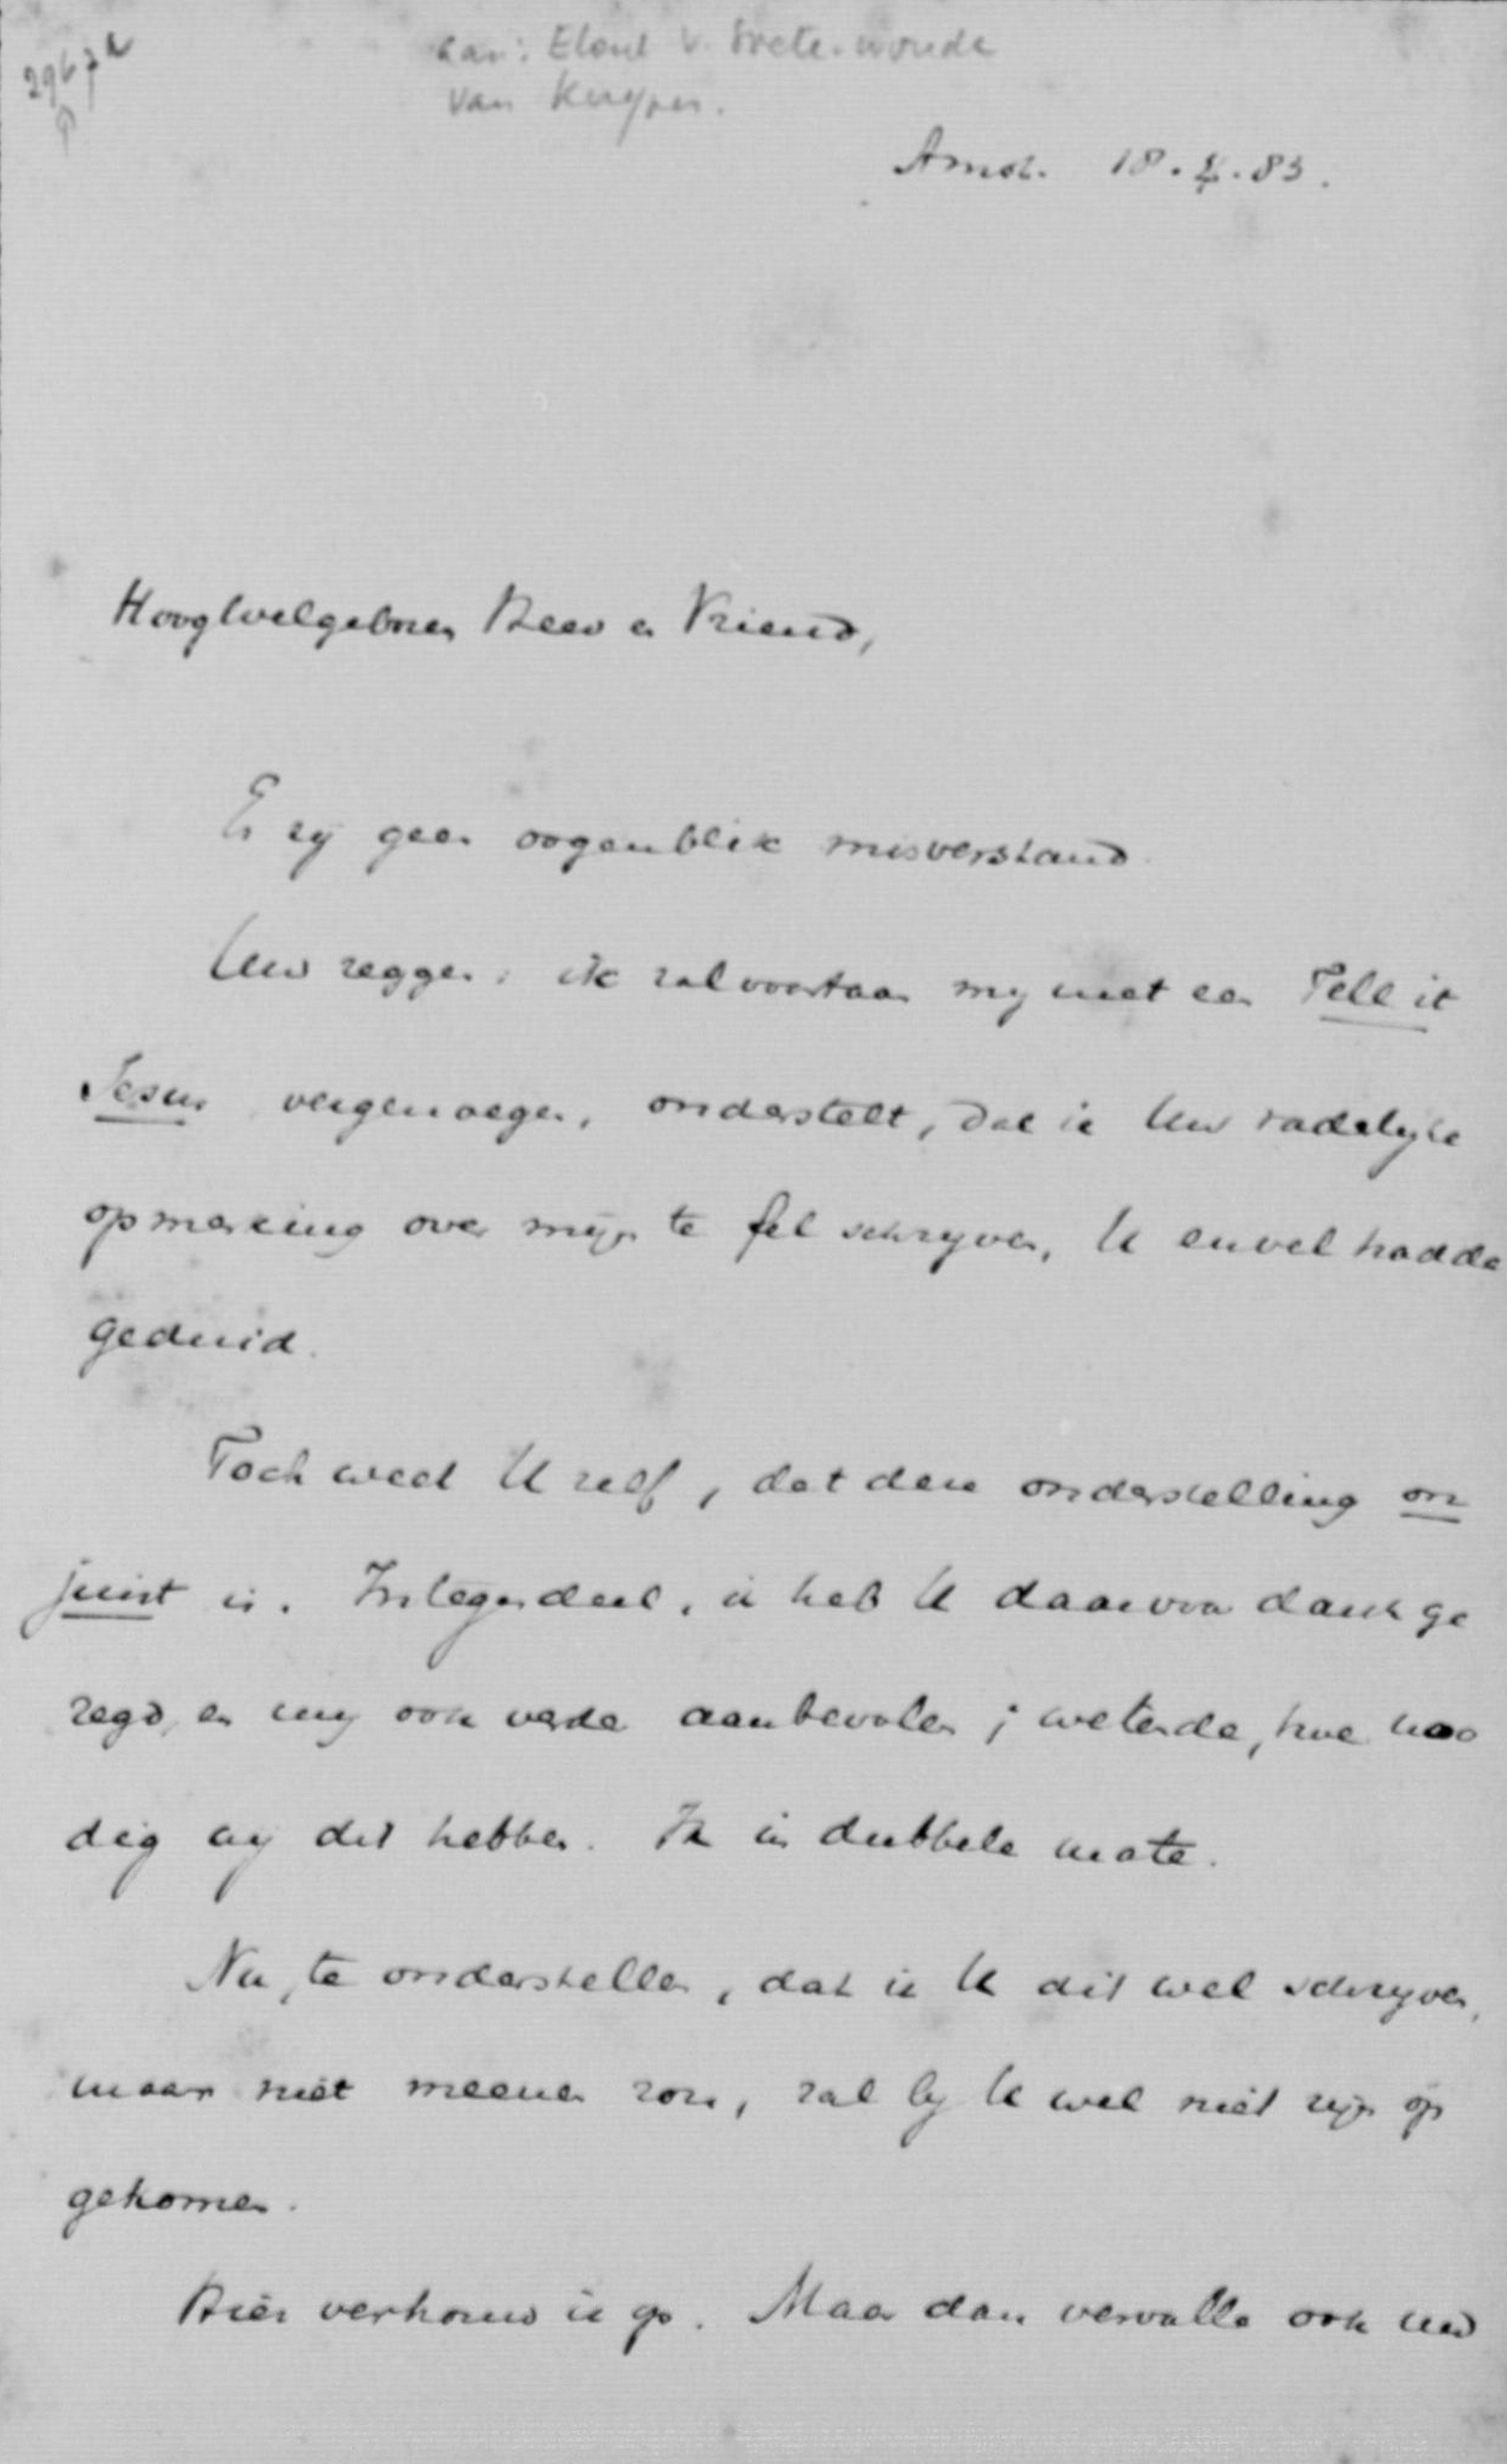 29672
aan: Elout v. Soeterwoude
van Kuyper.
Amst. 18.X.83.
Hoogwelgeboren Heer en Vriend,
Er zij geen oogenblik misverstand.
Uw zeggen: ik zal voortaan mij met een Tell it
Jesus vergenoegen, onderstelt, dat ik Uw zadelijke
opmerking over mijn te fel schrijven, U euvel hadde
geduid.
Toch weet U zelf, dat deze onderstelling on
juist is. Integendeel, ik heb U daarvoor dank ge
zegd, en mij ook verder aanbevolen; wetende, hoe noo
dig wij dit hebben. Ik in dubbele mate.
Nu, te onderstellen, dat ik U dit wel schrijven,
maar niet meenen zou, zal bij U wel niet zijn op
gekomen.
Hier vertrouw ik op. Maar dan vervalle ook uw